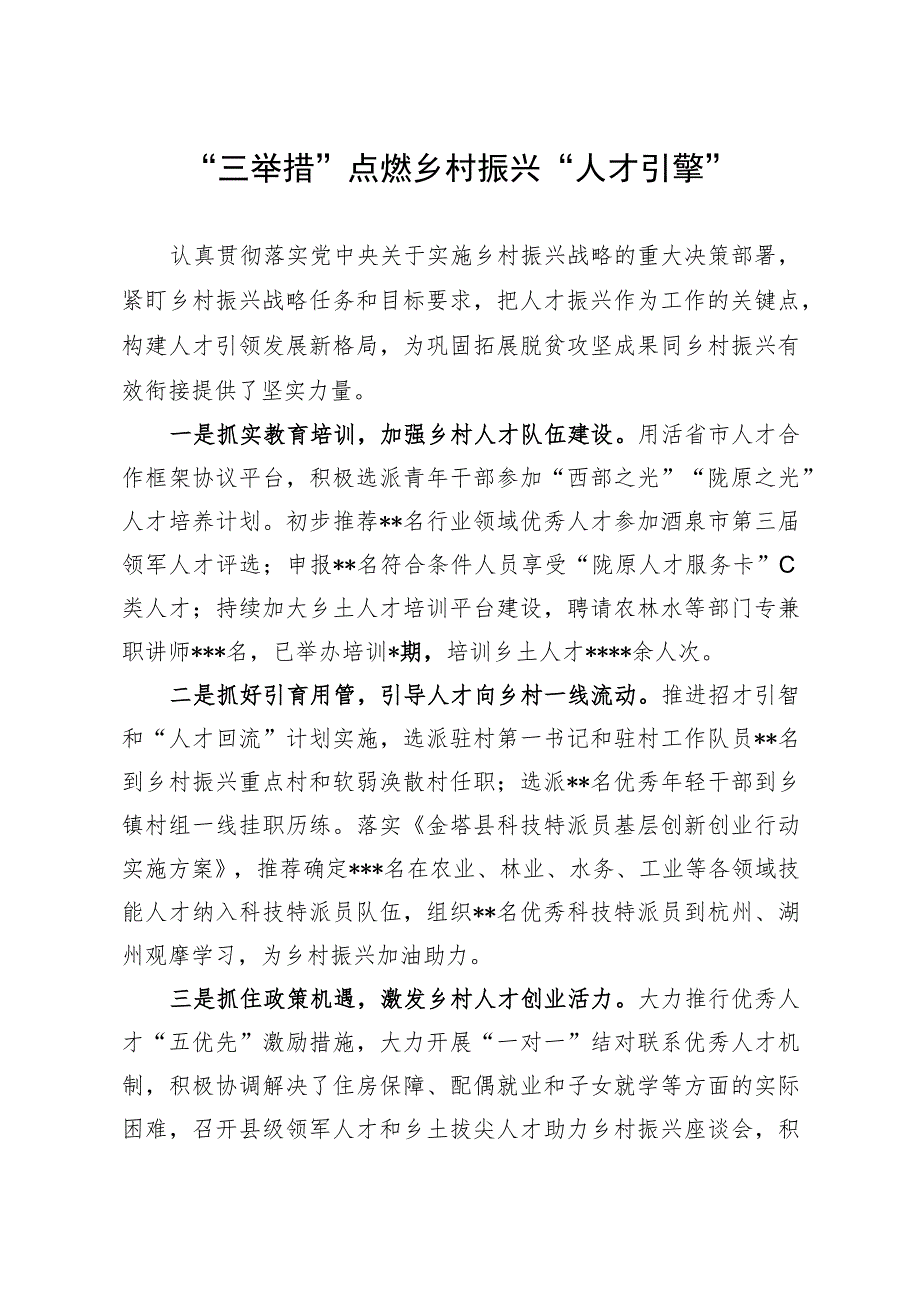 “三举措”点燃乡村振兴“人才引擎”
认真贯彻落实党中央关于实施乡村振兴战略的重大决策部署，
紧盯乡村振兴战略任务和目标要求，把人才振兴作为工作的关键点，
构建人才引领发展新格局，为巩固拓展脱贫攻坚成果同乡村振兴有
效衔接提供了坚实力量。
一是抓实教育培训，加强乡村人才队伍建设。用活省市人才合
作框架协议平台，积极选派青年干部参加“西部之光”“陇原之光”
人才培养计划。初步推荐**名行业领域优秀人才参加酒泉市第三届
领军人才评选；申报**名符合条件人员享受“陇原人才服务卡”C
类人才；持续加大乡土人才培训平台建设，聘请农林水等部门专兼
职讲师***名，已举办培训*期，培训乡土人才****余人次。
二是抓好引育用管，引导人才向乡村一线流动。推进招才引智
和“人才回流”计划实施，选派驻村第一书记和驻村工作队员**名
到乡村振兴重点村和软弱涣散村任职；选派**名优秀年轻干部到乡
镇村组一线挂职历练。落实《金塔县科技特派员基层创新创业行动
实施方案》，推荐确定***名在农业、林业、水务、工业等各领域技
能人才纳入科技特派员队伍，组织**名优秀科技特派员到杭州、湖
州观摩学习，为乡村振兴加油助力。
三是抓住政策机遇，激发乡村人才创业活力。大力推行优秀人
才“五优先”激励措施，大力开展“一对一”结对联系优秀人才机
制，积极协调解决了住房保障、配偶就业和子女就学等方面的实际
困难，召开县级领军人才和乡土拔尖人才助力乡村振兴座谈会，积